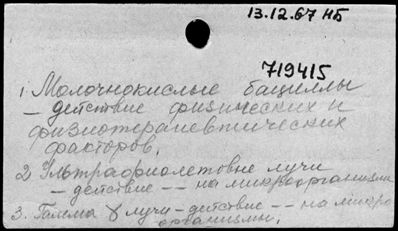 13.12.67 НБ
719415
1. Молочнокислые бациллы
— действие физических и
физиотерапевтических
факторов.
2. Ультрафиолетовые лучи
— действие — — на микроорганизмы
3. Гамма γ лучи - действие — — на микро
организмы.